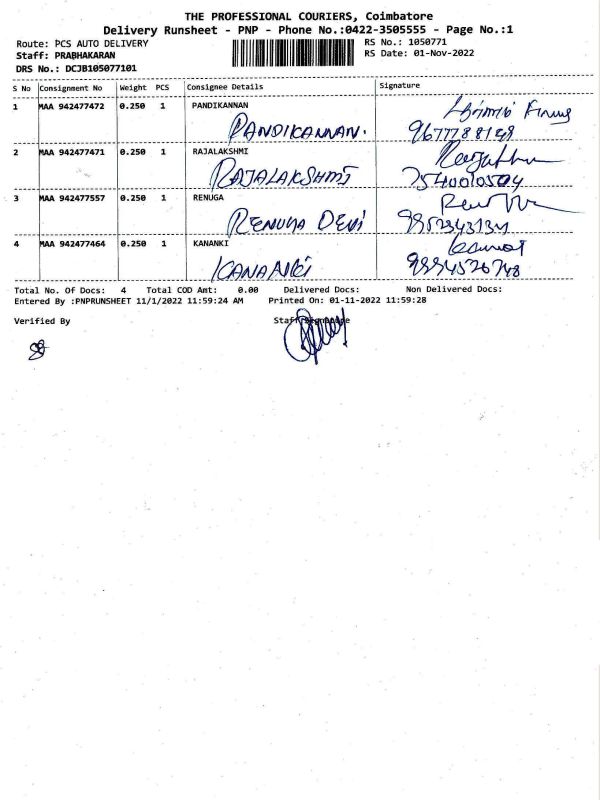 THE PROFESSIONAL COURIERS, Coimbatore
Delivery Runsheet - PNP - Phone No.:0422-3505555 - Page No.:1
Route: PCS AUTO DELIVERY
RS No.: 1050771
Staff: PRABHAKARAN
RS Date: 01-Nov-2022
DRS No.: DCJB105077101
S No Consignment No Weight PCS Consignee Details Signature
1 MAA 942477472 0.250 1 PANDIKANNAN
PANDIKANNAN.
2 MAA 942477471 0.250 1 RAJALAKSHMI
RAJALAKSHMI
3 MAA 942477557 0.250 1 RENUGA
RENUGA DEVI
4 MAA 942477464 0.250 1 KANANKI
KANANKI
Total No. Of Docs: 4 Total COD Amt: 0.00 Delivered Docs: Non Delivered Docs:
Entered By :PNPRUNSHEET 11/1/2022 11:59:24 AM Printed On: 01-11-2022 11:59:28
Verified By Staff Signature